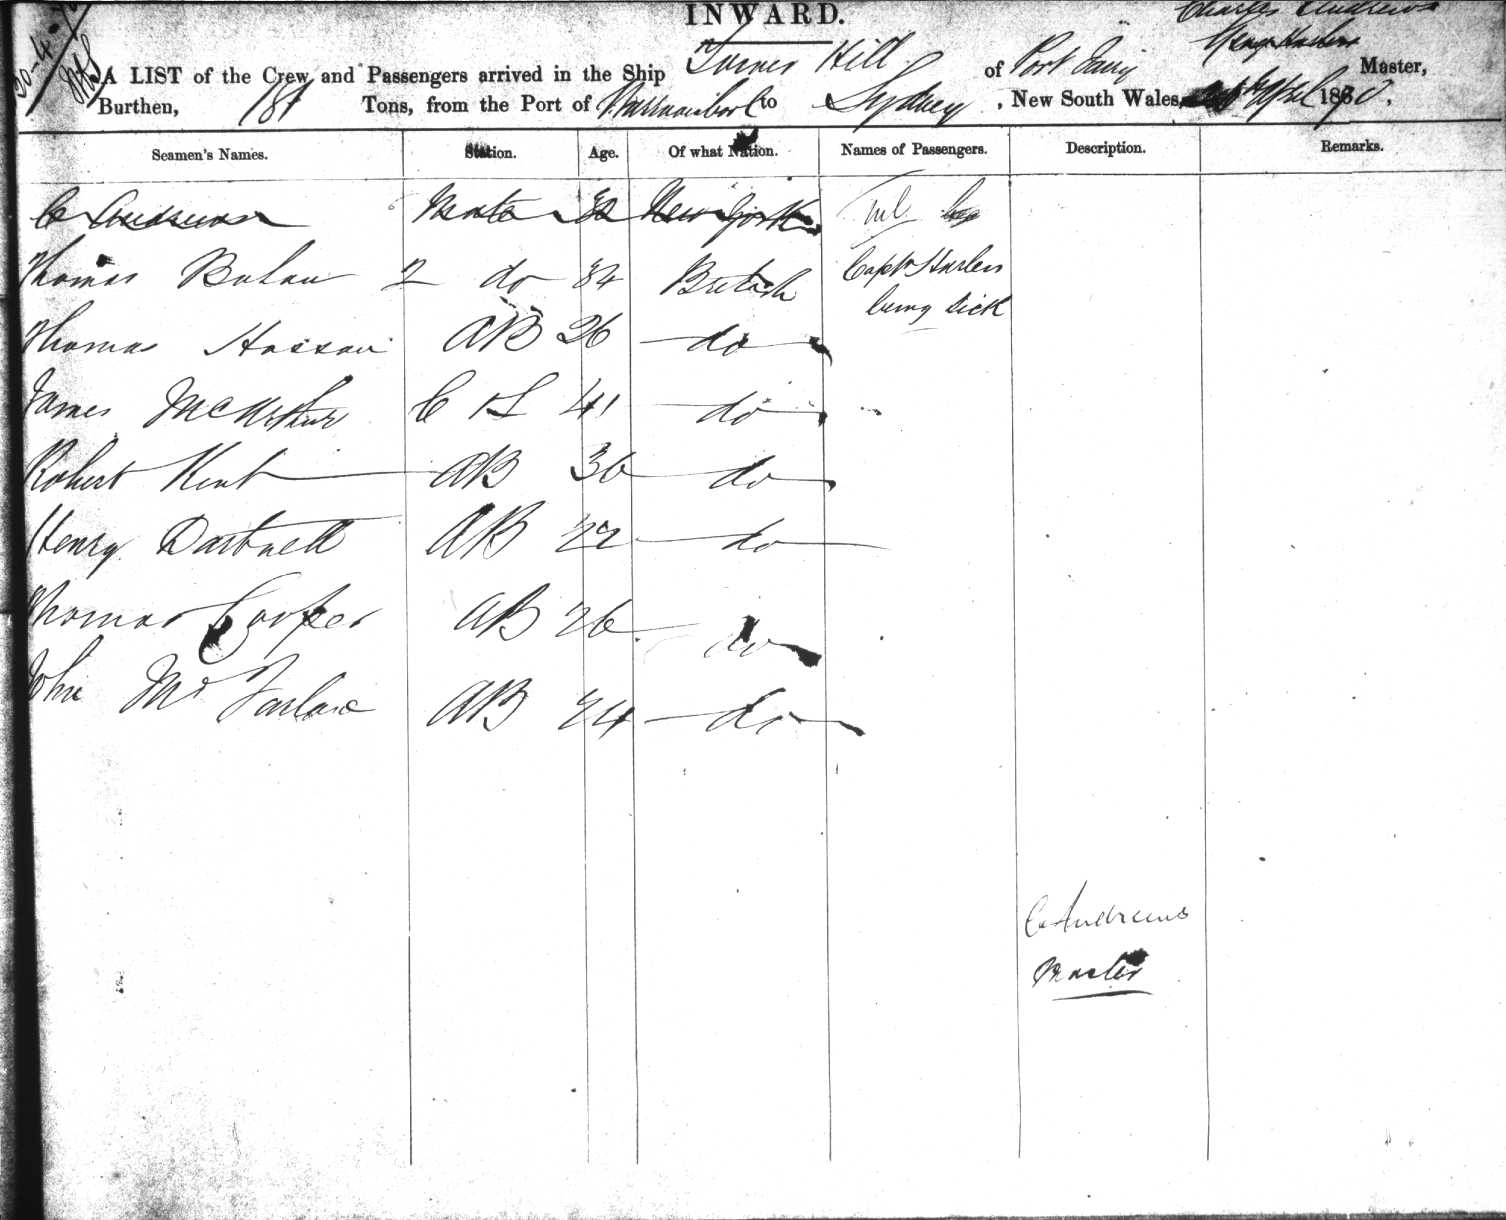 INWARD.
Charles Andrews
20-4-70
A LIST of the Crew and Passengers arrived in the Ship Turner Hill of Port Fairy Master,
Burthen, 181 Tons, from the Port of Warrnambool to Sydney, New South Wales, April 1870.
Seamen's Names. Station. Age. Of what Nation. Names of Passengers. Description. Remarks.
C Anderson Mate 32 New York Nil
Thomas 2 do 34 British Captn Harlen
being sick
Thomas Hassan AB 26 do
James McArthur C & S 41 do
Robert Kent AB 36 do
Henry Dartnell AB 22 do
Thomas Cooper AB 26 do
John Mc Farlane AB 24 do
C Andrews
Master